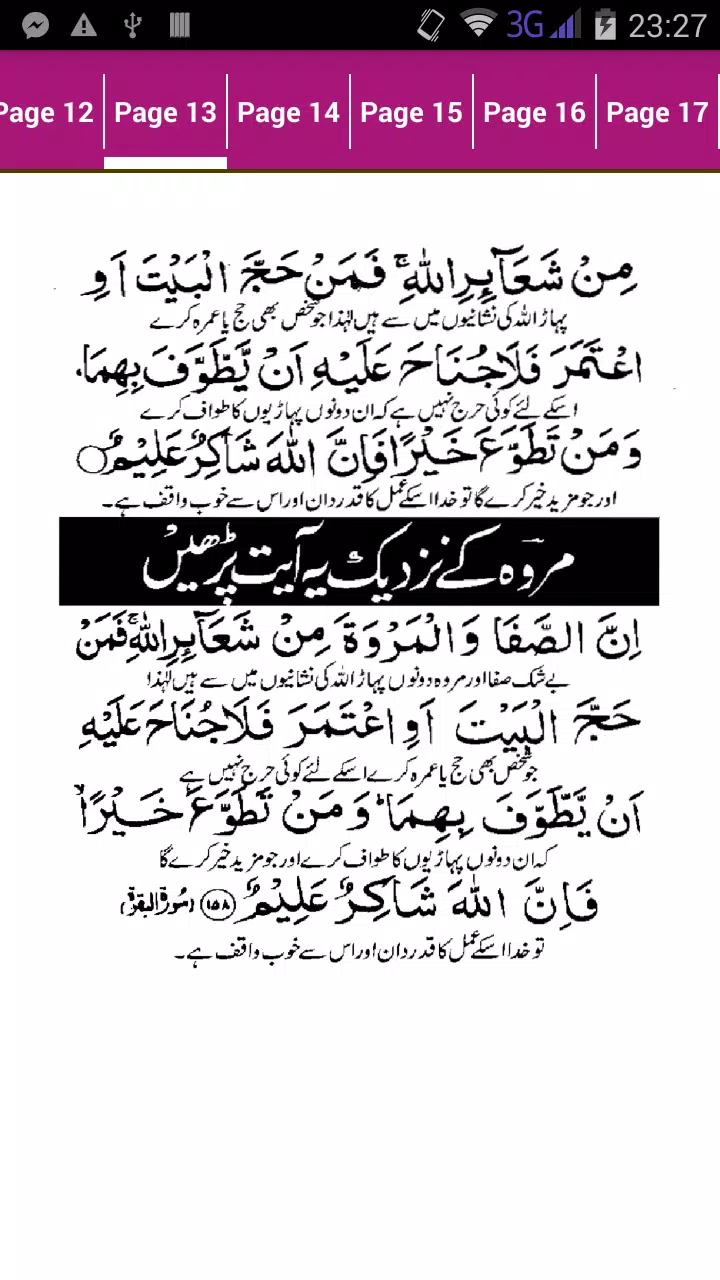 3G 23:27
Page 12 Page 13 Page 14 Page 15 Page 16 Page 17
مِنْ شَعَآىِٕرِ اللّٰهِۚ فَمَنْ حَجَّ الْبَيْتَ اَوِ
پہاڑ اللہ کی نشانیوں میں سے ہیں لہٰذا جو شخص بھی حج یا عمرہ کرے
اعْتَمَرَ فَلَا جُنَاحَ عَلَيْهِ اَنْ يَّطَّوَّفَ بِهِمَا.
اسکے لئے کوئی حرج نہیں ہے کہ ان دونوں پہاڑیوں کا طواف کرے
وَمَنْ تَطَوَّعَ خَيْرًا فَاِنَّ اللّٰهَ شَاكِرٌ عَلِيْمٌ
اور جو مزید خیر کرے گا تو خدا اسکے عمل کا قدردان اور اس سے خوب واقف ہے۔
مروہ کے نزدیک یہ آیت پڑھیں
اِنَّ الصَّفَا وَالْمَرْوَةَ مِنْ شَعَآىِٕرِ اللّٰهِۚ فَمَنْ
بے شک صفا اور مروہ دونوں پہاڑ اللہ کی نشانیوں میں سے ہیں لہٰذا
حَجَّ الْبَيْتَ اَوِ اعْتَمَرَ فَلَا جُنَاحَ عَلَيْهِ
جو شخص بھی حج یا عمرہ کرے اسکے لئے کوئی حرج نہیں ہے
اَنْ يَّطَّوَّفَ بِهِمَاؕ وَمَنْ تَطَوَّعَ خَيْرًاۙ
کہ ان دونوں پہاڑیوں کا طواف کرے اور جو مزید خیر کرے گا
فَاِنَّ اللّٰهَ شَاكِرٌ عَلِيْمٌ ﴿۱۵۸﴾ (سُورَۃُ البقرۃ)
تو خدا اسکے عمل کا قدردان اور اس سے خوب واقف ہے۔